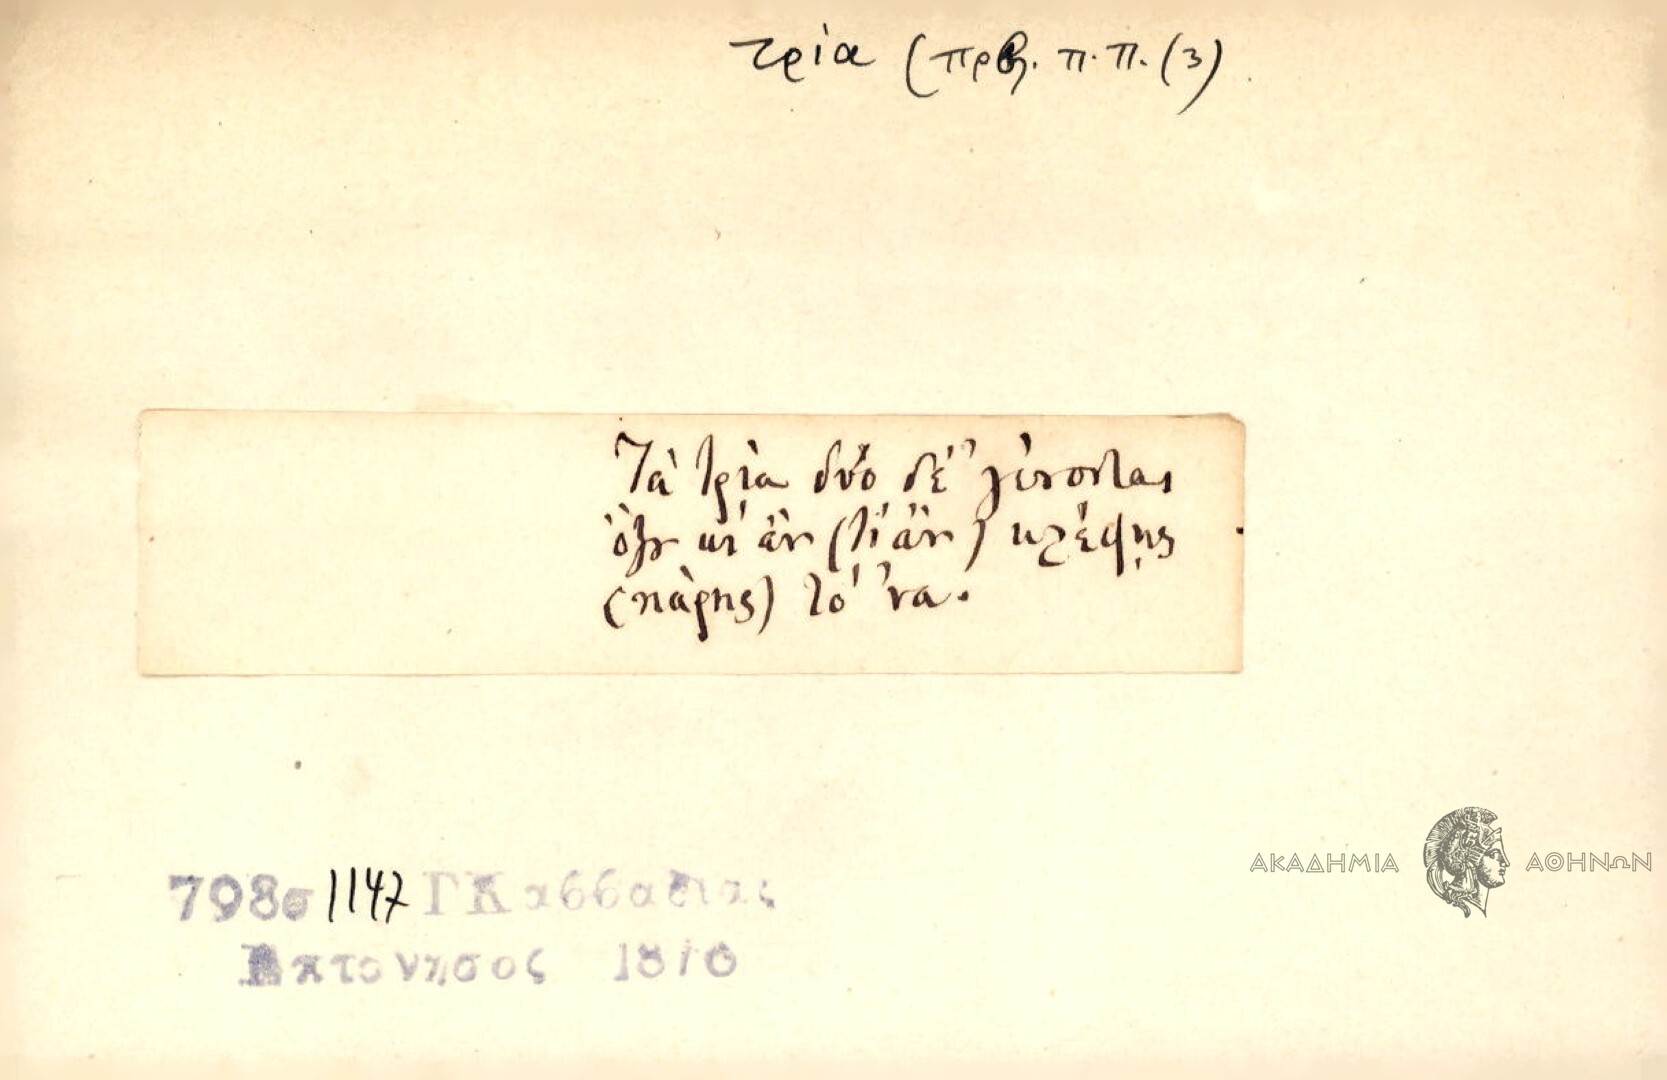 τρία (πρβ. π.π. (3)
Τὰ τρία δυὸ δὲ γίνονται
κι ἂν (τί ἂν) κλέψῃς
(πάρῃς) τὸ ἕνα.
798σ 1147 Γ Καββαδίας
Επτάνησος 1876
ΑΚΑΔΗΜΙΑ ΑΘΗΝΩΝ